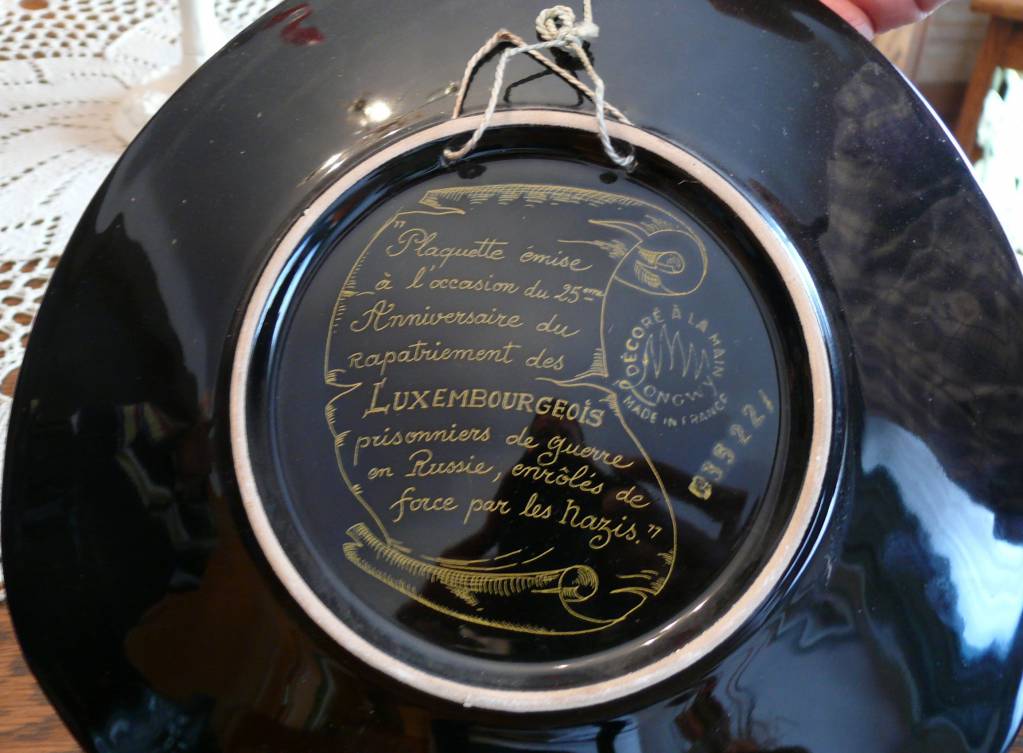 "Plaquette émise
à l'occasion du 25eme
Anniversaire du
Rapatriement des
LUXEMBOURGEOIS
prisonniers de guerre
en Russie, enrôlés de
force par les Nazis."
DÉCORÉ À LA MAIN
LONGWY
MADE IN FRANCE